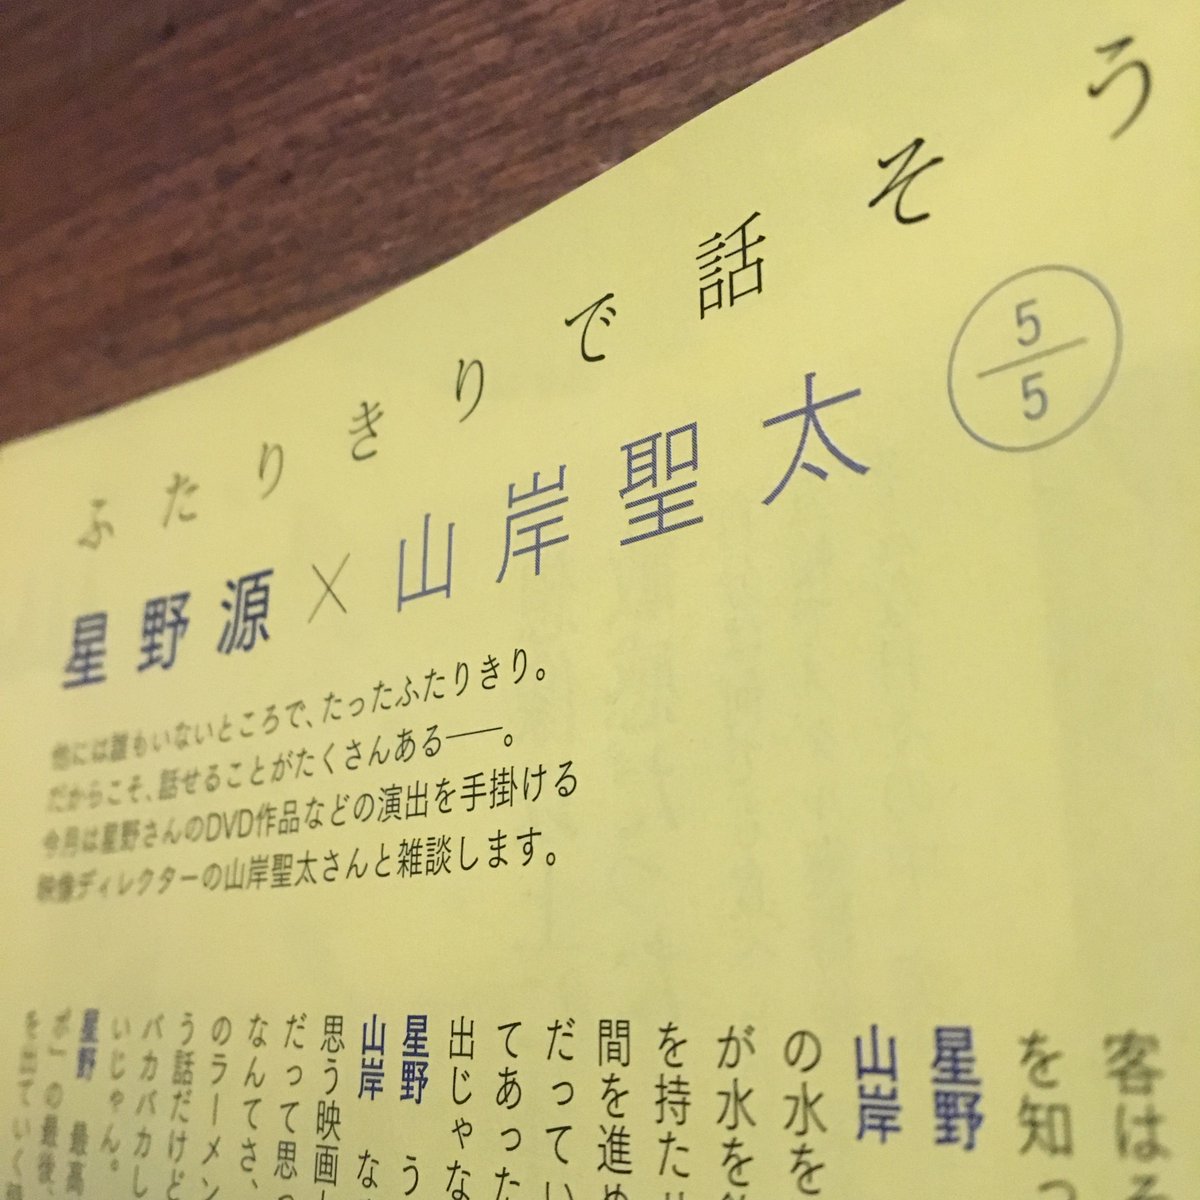 ふたりきりで話そう
星野源×山岸聖太
5/5
他には誰もいないところで、たったふたりきり。
だからこそ、話せることがたくさんある──。
今月は星野さんのDVD作品などの演出を手掛ける
映像ディレクターの山岸聖太さんと雑談します。
客は
を知っ
星野
山岸
の水を
が水を
を持たせ
間を進め
だってい
てあった
出じゃな
星野 う
山岸 な
思う映画
だって思っ
なんてさ、
のラーメン
う話だけど
バカバカし
いじゃん。
星野 最高
ボ」の最後、
を出ていく